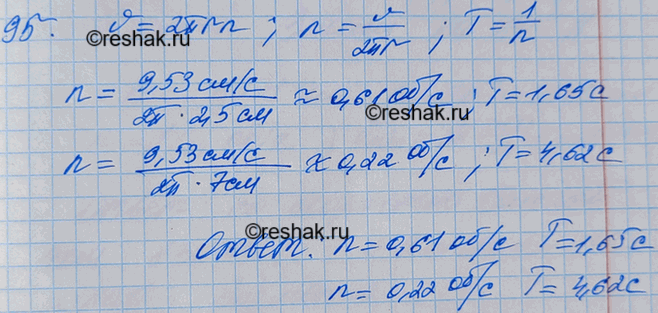 95. ϑ = 2πrn ; n = ϑ/2πr ; T = 1/n
©reshak.ru
n = 9,53 см/с / 2π · 2,5 см ≈ 0,61 об/с ; T = 1,65 с
©reshak.ru
n = 9,53 см/с / 2π · 7 см ≈ 0,22 об/с ; T = 4,62 с
©reshak.ru
Ответ: n = 0,61 об/с T = 1,65 с
n = 0,22 об/с T = 4,62 с